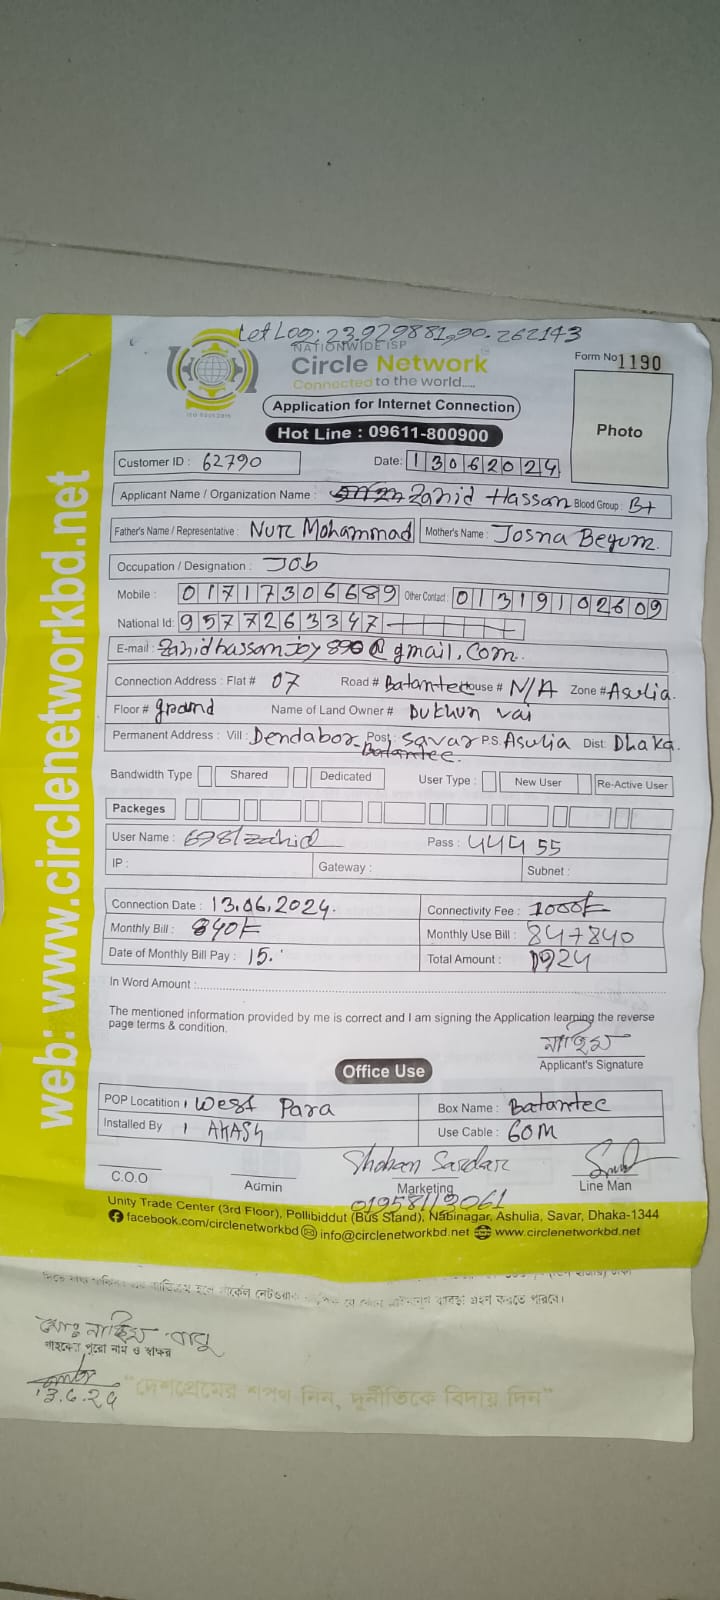 Let Log: 23.929881,90.262143
NATIONWIDE ISP
Circle Network
Connected to the world.....
Form No 1190
Application for Internet Connection
Hot Line : 09611-800900
Photo
Customer ID : 62790 Date: 13062024
Applicant Name / Organization Name : Zahid Hassan Blood Group : B+
Father's Name / Representative : Nur Mohammad Mother's Name : Josna Begum.
Occupation / Designation : Job
Mobile : 01717306689 Other Contact : 01319102609
National Id: 9577263347
E-mail : Zahidhassanjoy890@gmail.com.
Connection Address : Flat # 07 Road # Batamtec House # N/A Zone # Asulia.
Floor # ground Name of Land Owner # Dukhun vai
Permanent Address : Vill : Dendabor Post : Savar P.S. Asulia Dist: Dhaka.
Batamtec.
Bandwidth Type Shared Dedicated User Type : New User Re-Active User
Packeges
User Name : Zahid Pass : 444 55
IP : Gateway : Subnet :
Connection Date : 13.06.2024. Connectivity Fee : 1000
Monthly Bill : 840 Monthly Use Bill : 84+840
Date of Monthly Bill Pay : 15. Total Amount : 924
In Word Amount :
The mentioned information provided by me is correct and I am signing the Application learning the reverse
page terms & condition.
নাহিম
Applicant's Signature
Office Use
POP Locatition : West Para Box Name : Batamtec
Installed By : AKASH Use Cable : 60M
Shohan Sardar
C.O.O Admin Marketing Line Man
01958113061
Unity Trade Center (3rd Floor), Pollibiddut (Bus Stand), Nabinagar, Ashulia, Savar, Dhaka-1344
facebook.com/circlenetworkbd info@circlenetworkbd.net www.circlenetworkbd.net
web: www.circlenetworkbd.net
মোঃ নাহিম বাবু
গ্রাহকের পুরো নাম ও স্বাক্ষর
13.6.24
"দেশপ্রেমের শপথ নিন, দুর্নীতিকে বিদায় দিন"